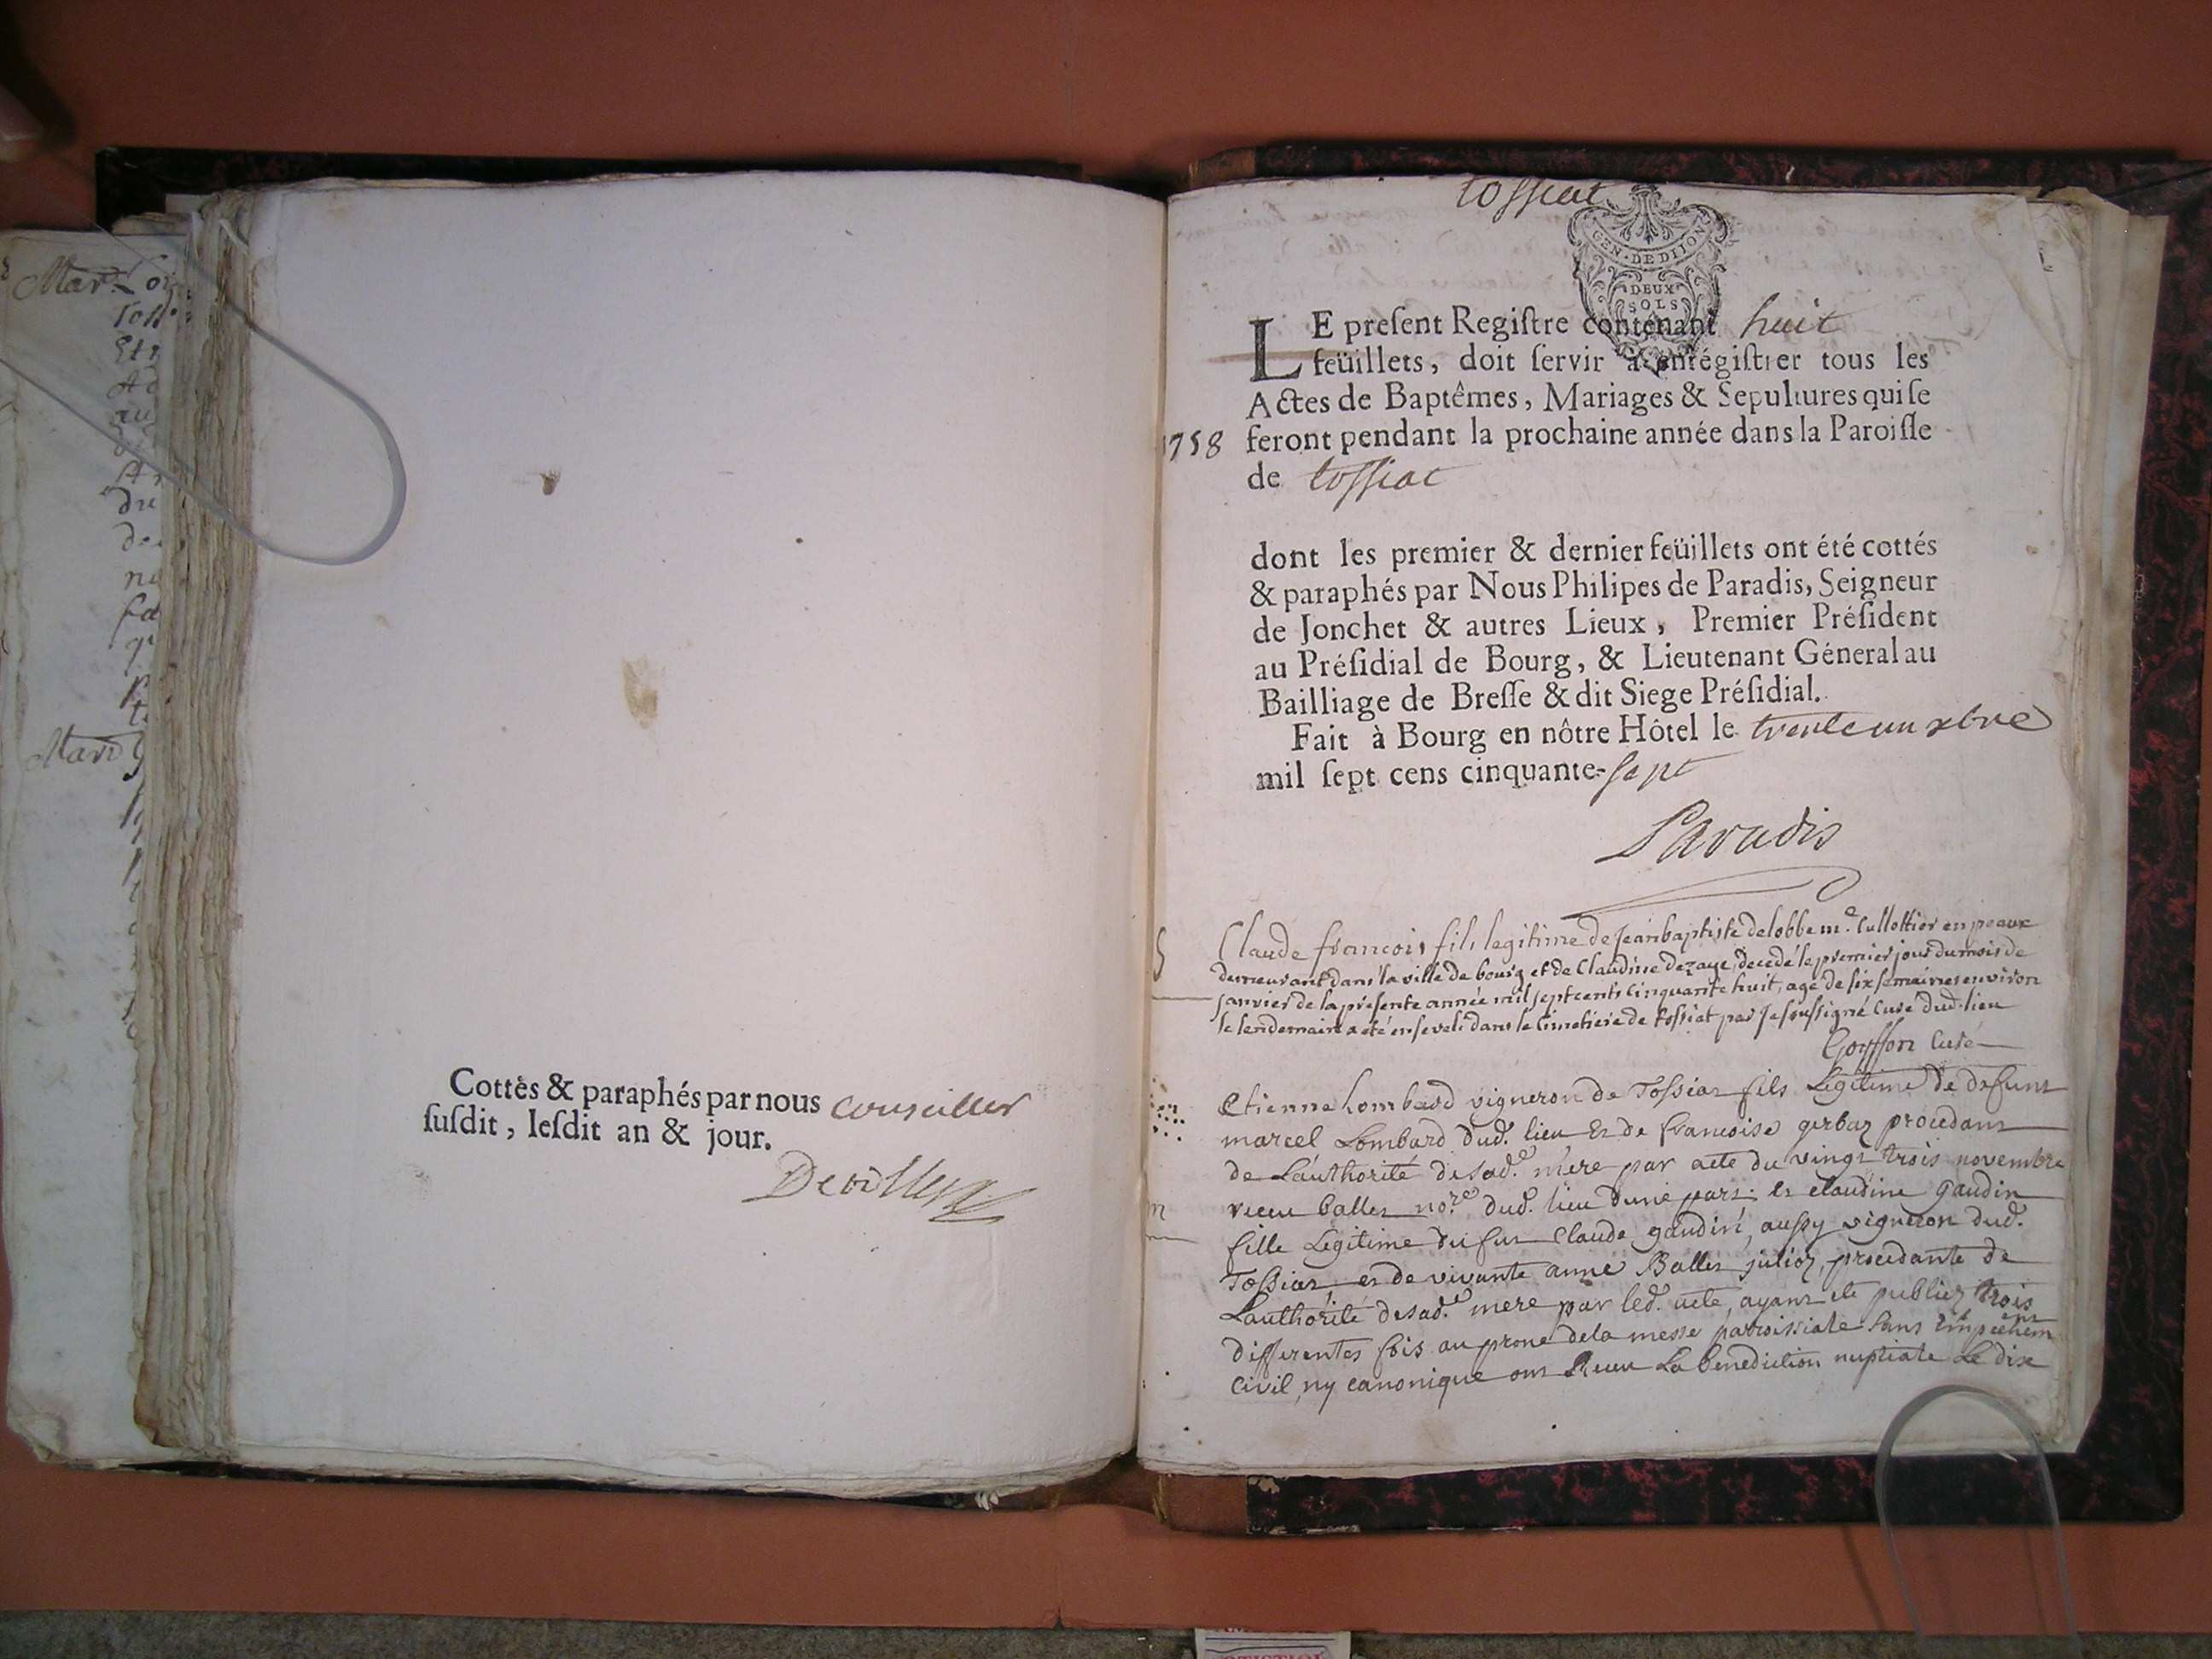 Mar.
Mari
Cottés & paraphés par nous conseiller
suſdit, leſdit an & jour.
tossiat
GEN · DE DIJON
DEUX
SOLS
LE preſent Regiſtre contenant huit
feüillets, doit ſervir à enrégiſtrer tous les
Actes de Baptêmes, Mariages & Sepultures qui ſe
1758 feront pendant la prochaine année dans la Paroiſſe
de tossiat
dont les premier & dernier feüillets ont été cottés
& paraphés par Nous Philipes de Paradis, Seigneur
de Jonchet & autres Lieux, Premier Préſident
au Préſidial de Bourg, & Lieutenant Géneral au
Bailliage de Breſſe & dit Siege Préſidial.
Fait à Bourg en nôtre Hôtel le trente un xbre
mil ſept cens cinquante-sept
Paradis
S
Claude francois fils legitime de Jeanbaptiste delobbe me. Cullottier en peaux
demeurant dans la ville de bourg et de Claudine dezaye, decedé le premier jour du mois de
janvier de la presente année mil sept cents cinquante huit, agé de six semaines environ
le lendemain a eté enseveli dans le Cimetiere de tossiat par Je soussigné Curé dud. lieu
Goyffon Curé
Etienne Lombard vigneron de Tossiat fils Legitime de defunt
marcel Lombard dud. lieu Et de francoise gerbaz procedant
de L'authorité de sad.e mere par acte du vingt trois novembre
m recu Ballet no.re dud. lieu d'une part. Et claudine gaudin
fille Legitime du fut Claude gaudin, aussy vigneron dud.
Tossiat, et de vivante anne Ballet julioz, procedante de
L'authorité de sad.e mere par led. acte, ayant ete publiez trois
differentes fois au prone de la messe parroissiale sans Empechemnt
Civil, ny canonique ont Receu La benediction nuptiale Le dix